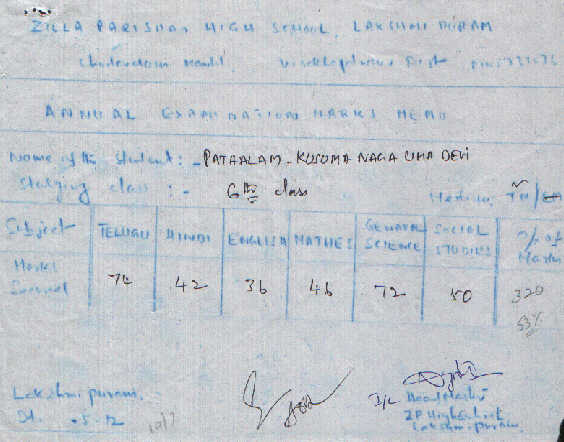 ZILLA PARISHAD HIGH SCHOOL, LAKSHMI PURAM
ANNUAL EXAMINATION MARKS MEMO
Name of the Student : - PATHALAM - KUSUMA NAGA UMA DEVI
Studying class : - 6th class
Medium TM/EM
Subject TELUGU HINDI ENGLISH MATHES GENERAL SCIENCE SOCIAL STUDIES % of Marks
Marks Secured 74 42 36 46 72 50 320
53%
Lakshmi puram. I/C Head Master
Dt. -5-12 Z P High School
Lakshmi puram